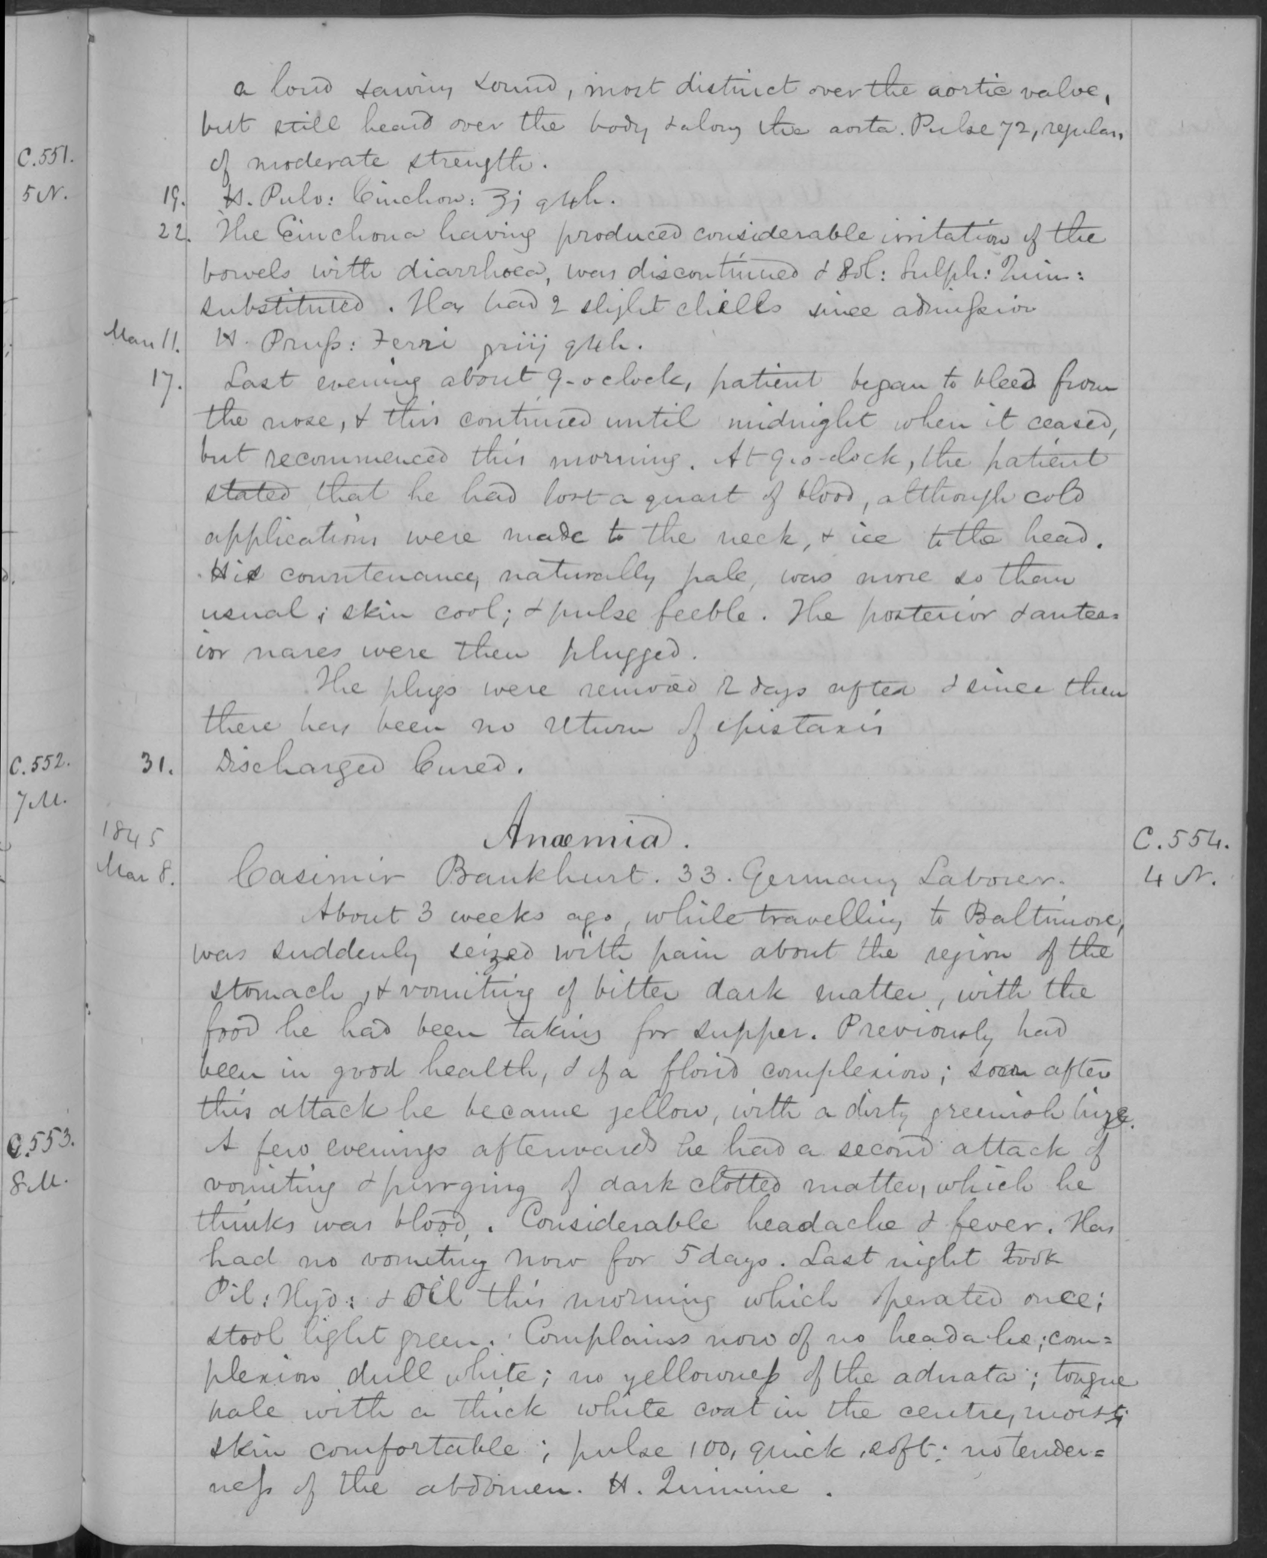 a loud sawing sound, most distinct over the aortic valve,
but still heard over the body & along the aorta. Pulse 72, regular,
of moderate strength.
C.551.
5 N.
19. H. Pulv: Cinchon: ʒj q4h.
22. The Cinchona having produced considerable irritation of the
bowels with diarrhoea, was discontinued & Sol: Sulph: Quin:
substituted. Has had 2 slight chills since admission
Mar 11. H. Pruss: Ferri griij q4h.
17. Last evening about 9-o clock, patient began to bleed from
the nose, & this continued until midnight when it ceased,
but recommenced this morning. At 9-o-clock, the patient
stated that he had lost a quart of blood, although cold
applications were made to the neck, & ice to the head.
His countenance, naturally pale, was more so than
usual; skin cool; & pulse feeble. The posterior & anter=
ior nares were then plugged.
The plugs were removed 2 days after & since then
there has been no return of epistaxis
C.552.
7 M.
31. Discharged Cured.
Anæmia.
1845
Mar 8. Casimir Bankhurt. 33. Germany Laborer.
C.554.
4 N.
About 3 weeks ago, while travelling to Baltimore,
was suddenly seized with pain about the region of the
stomach, & vomiting of bitter dark matter, with the
food he had been taking for supper. Previously had
been in good health, & of a florid complexion; soon after
this attack he became yellow, with a dirty greenish tinge.
C.553.
8 M.
A few evenings afterwards he had a second attack of
vomiting & purging of dark clotted matter, which he
thinks was blood. Considerable headache & fever. Has
had no vomiting now for 5 days. Last night took
Pil: Hyd: & Oil this morning which operated once;
stool light green. Complains now of no headache; com=
plexion dull white; no yellowness of the adnata; tongue
pale with a thick white coat in the centre, moist;
skin comfortable; pulse 100, quick, soft: no tender=
ness of the abdomen. H. Quinine.